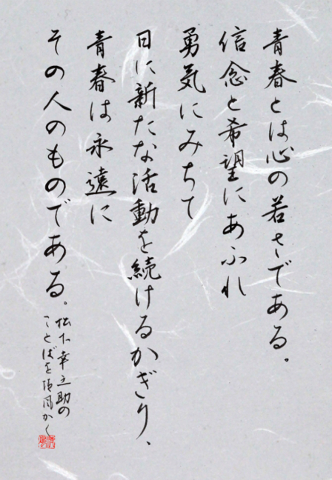 青春とは心の若さである。
信念と希望にあふれ
勇気にみちて
日に新たな活動を続けるかぎり、
青春は永遠に
その人のものである。
松下幸之助の
ことばを